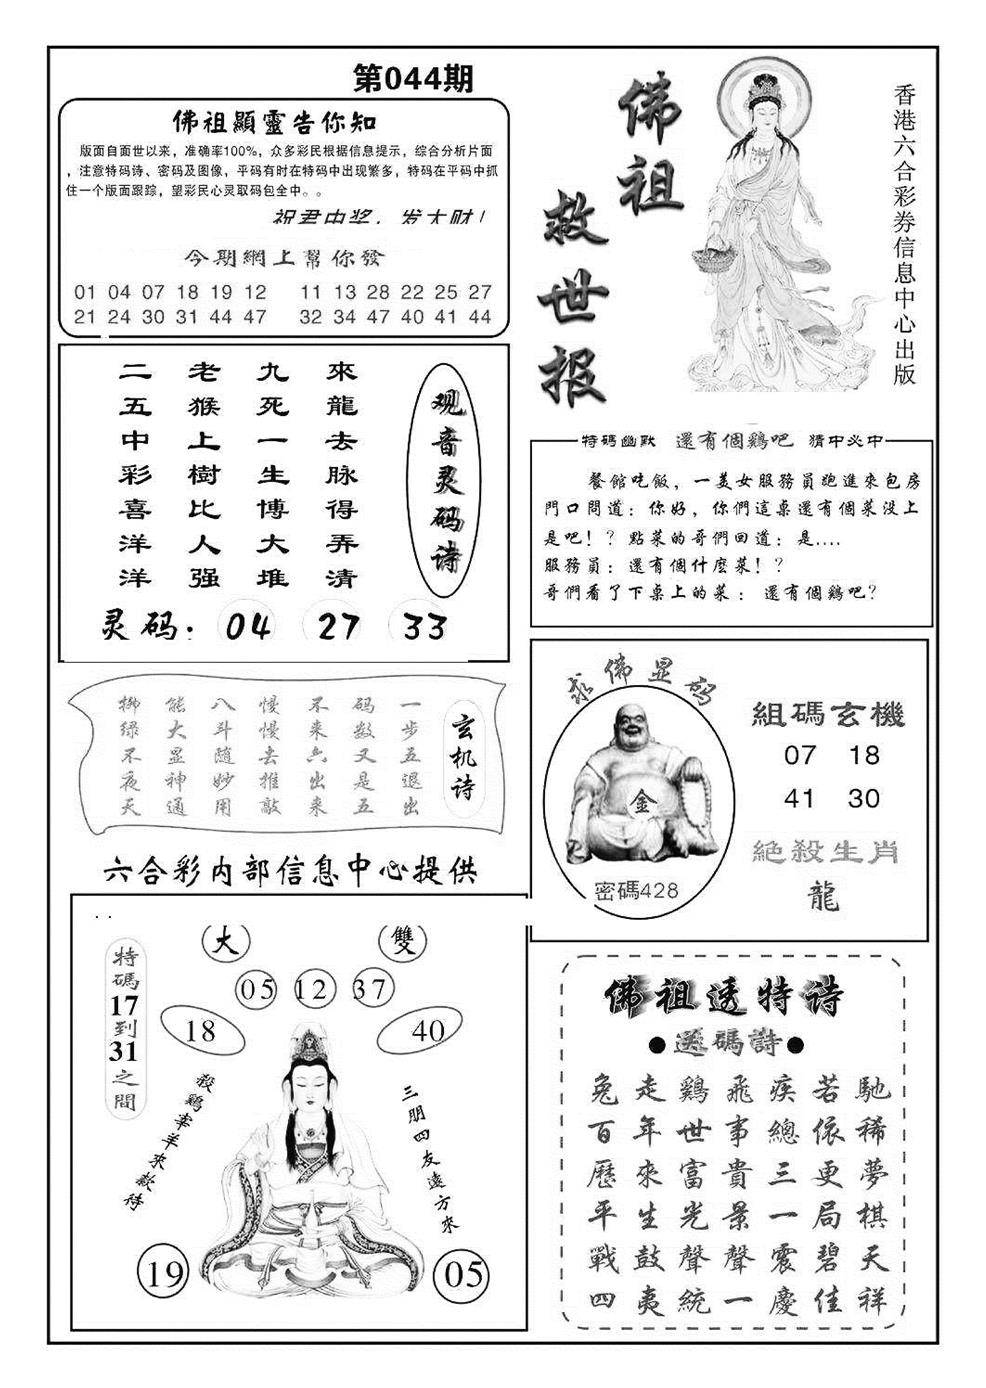 第044期
佛祖顯靈告你知
版面自面世以来，准确率100%，众多彩民根据信息提示，综合分析片面
，注意特码诗、密码及图像，平码有时在特码中出现繁多，特码在平码中抓
住一个版面跟踪，望彩民心灵取码包全中。。
祝君中奖，发大财！
今期網上幫你發
01 04 07 18 19 12 11 13 28 22 25 27
21 24 30 31 44 47 32 34 47 40 41 44
佛祖
救世报
香港六合彩券信息中心出版
观音灵码诗
來龍去脉得弄清
九死一生博大堆
老猴上樹比人强
二五中彩喜洋洋
灵码：04 27 33
特碼幽默 還有個鷄吧 猜中必中
餐館吃飯，一美女服務員跑進來包房
門口問道：你好，你們這桌還有個菜没上
是吧！？點菜的哥們回道：是....
服務員：還有個什麽菜！？
哥們看了下桌上的菜：還有個鷄吧?
玄机诗
一步五退出
码数又是五
不来六出来
慢慢去推敲
八斗随妙用
能大显神通
柳绿不夜天
求佛显码
金
密碼428
組碼玄機
07 18
41 30
絕殺生肖
龍
六合彩内部信息中心提供
大 雙
05 12 37
18 40
特碼17到31之間
殺鷄宰羊來款待
三朋四友遠方來
19 05
佛祖透特诗
●選碼詩●
兔走鷄飛疾若馳
百年世事總依稀
歷來富貴三更夢
平生光景一局棋
戰鼓聲聲震碧天
四夷統一慶佳祥